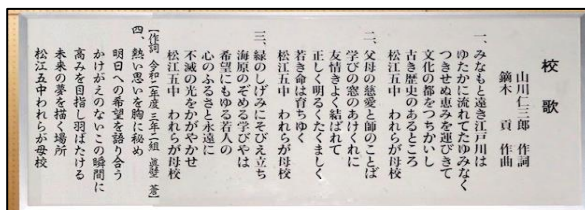 校歌
山川仁三郎 作詞
鏑木 貢 作曲
一、みなもと遠き江戸川は
ゆたかに流れてたゆみなく
つきせぬ恵みを運びきて
文化の都をつちかいし
古き歴史のあるところ
松江五中 われらが母校
二、父母の慈愛と師のことば
学びの窓のあけくれに
友情きよく結ばれて
正しく明るくたくましく
若き命は育ちゆく
松江五中 われらが母校
三、緑のしげみにそびえ立ち
海原のぞめる学びやは
希望にもゆる若人の
心のふるさと永遠に
不滅の光をかがやかせ
松江五中 われらが母校
(作詞 令和二年度 三年二組 眞壁 蒼)
四、熱い思いを胸に秘め
明日への希望を語り合う
かけがえのないこの瞬間に
高みを目指し羽ばたける
未来の夢を描く場所
松江五中われらが母校